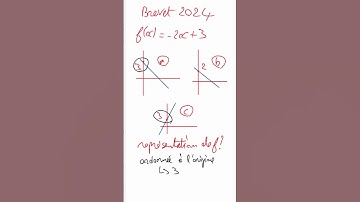 Brevet 2024
f(x) = -2x + 3
3 a
2 b
3 c
représentation de f?
ordonnée à l'origine
↳ 3